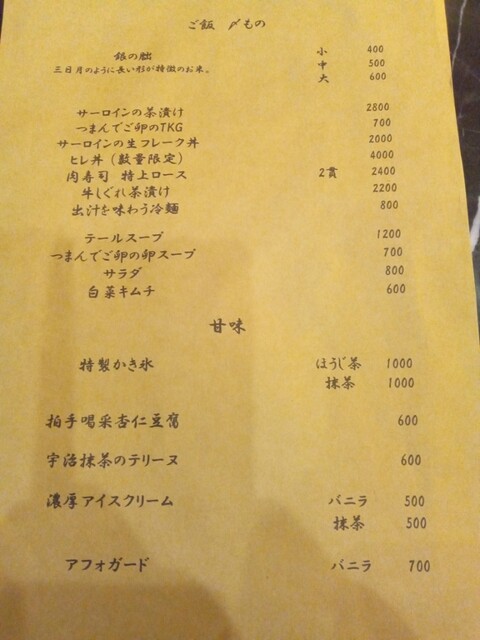 ご飯 〆もの
銀の朏 小 400
三日月のように長い形が特徴のお米。 中 500
大 600
サーロインの茶漬け 2800
つまんでご卵のTKG 700
サーロインの生フレーク丼 2000
ヒレ丼（数量限定） 4000
肉寿司 特上ロース 2貫 2400
牛しぐれ茶漬け 2200
出汁を味わう冷麺 800
テールスープ 1200
つまんでご卵の卵スープ 700
サラダ 800
白菜キムチ 600
甘味
特製かき氷 ほうじ茶 1000
抹茶 1000
拍手喝采杏仁豆腐 600
宇治抹茶のテリーヌ 600
濃厚アイスクリーム バニラ 500
抹茶 500
アフォガード バニラ 700